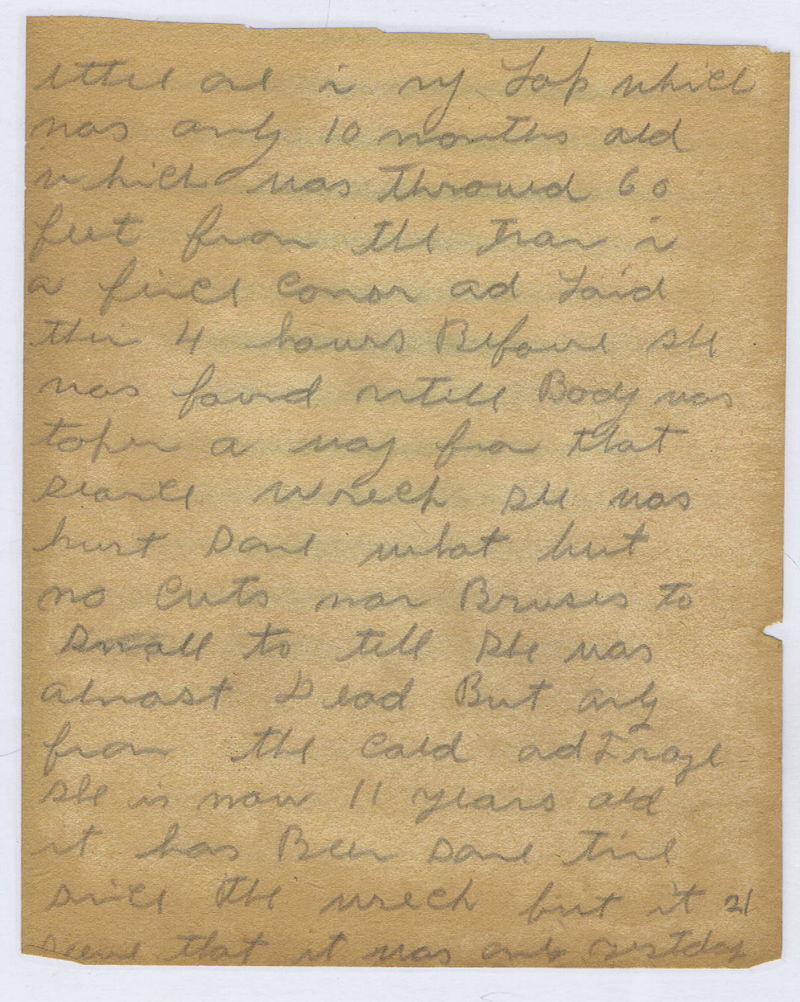 little one in my Lap which
was only 10 months old
which was throwed 60
feet from the Tran in
a fince Connor and Laid
thir 4 hours Before she
was found untill Body was
token a way from that
wrech she was
hurt Some what but
no Cuts nor Bruses to
Small to tell she was
almost Dead But only
from the Cold and
she is now 11 years old
it has Been Some time
since the wrech but it 21
seems that it was only